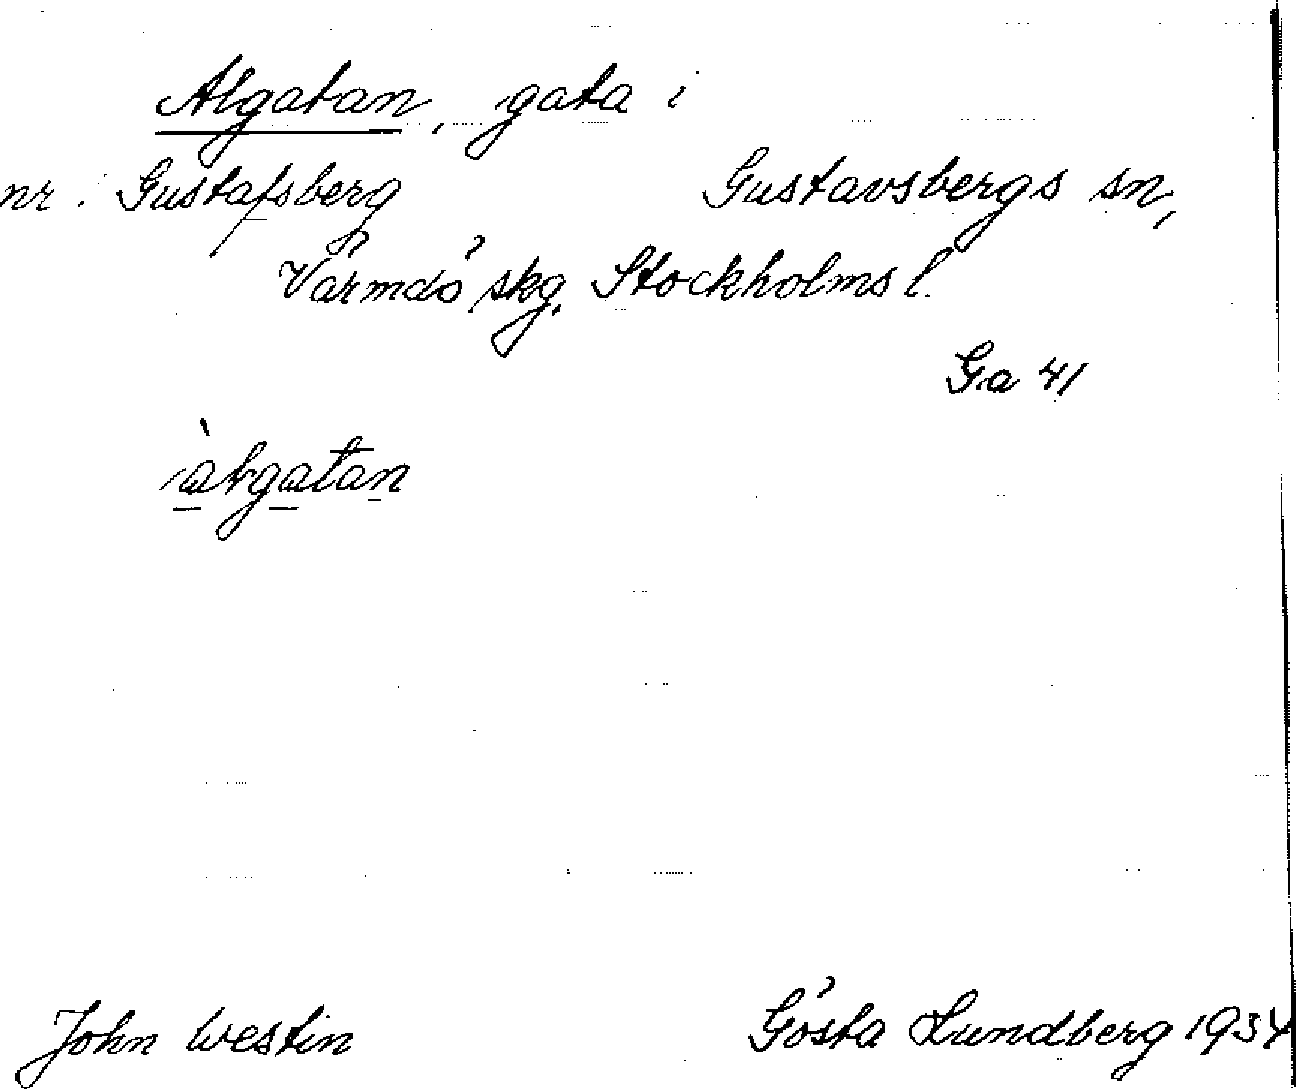 Algatan, gata i
nr. Gustafsberg Gustavsbergs sn,
Värmdö skg, Stockholms l.
Ga 41
John Westin Gösta Lundberg 1934